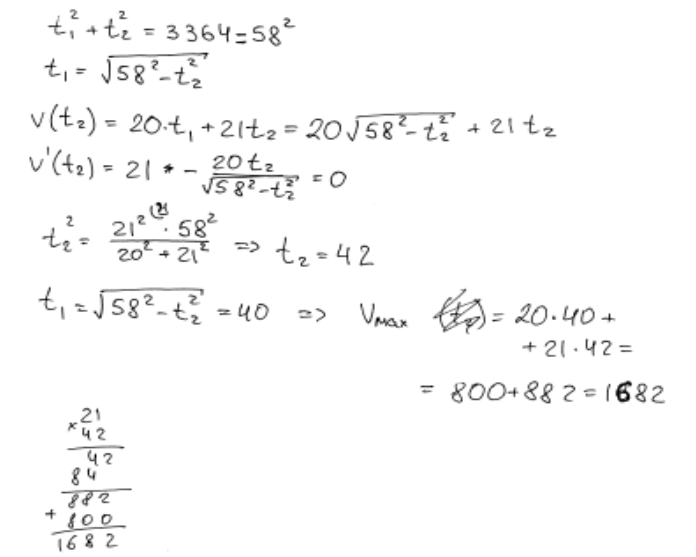 t₁² + t₂² = 3364 = 58²
t₁ = √(58² - t₂²)
v(t₂) = 20·t₁ + 21t₂ = 20√(58² - t₂²) + 21t₂
v'(t₂) = 21 - 20t₂/√(58² - t₂²) = 0
t₂² = 21²·58²/(20² + 21²) => t₂ = 42
t₁ = √(58² - t₂²) = 40 => Vmax = 20·40 +
+ 21·42 =
= 800 + 882 = 1682
× 21
42
42
84
882
+ 800
1682